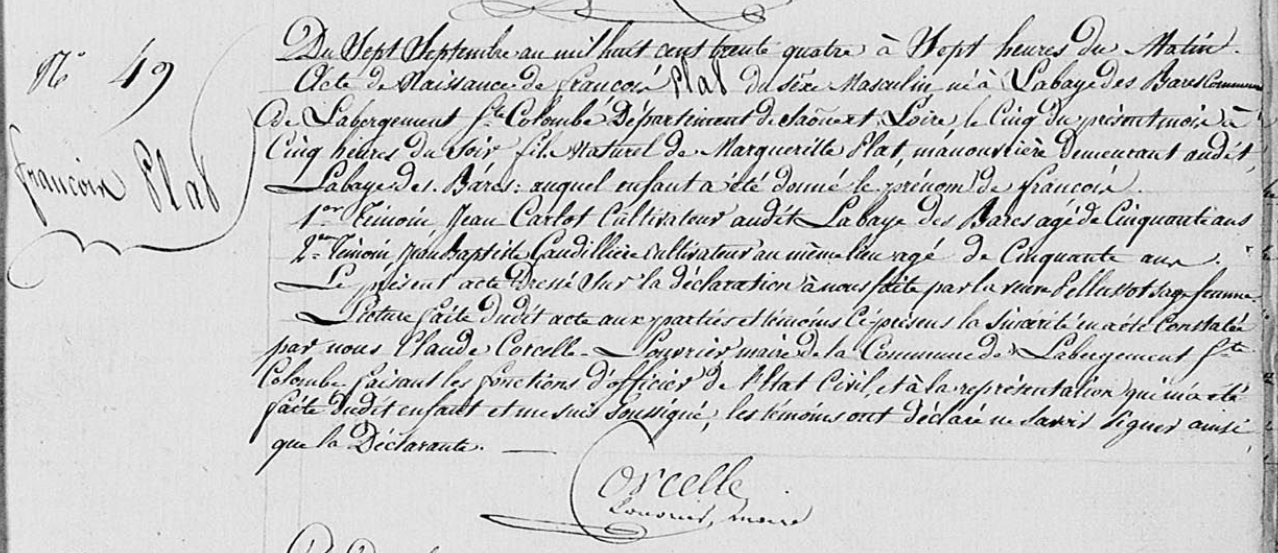 N° 49
françois Plat
Du Sept Septembre an mil huit cent trente quatre à Sept heures du Matin.
Acte de Naissance de françois Plat du sèxe Masculin né à Labaye des Bares Commune
de Labergement Ste Colombe Département de Saône et Loire le Cinq du présent mois à
Cinq heures du Soir fils Naturel de Marguerille Plat, manouvrière demeurant audit
Labaye des Bares: auquel enfant a été donné le prénom de françois.
1er Témoin, Jean Carlot Cultivateur audit Labaye des Bares agé de Cinquante ans
2me Témoin Jean Baptiste Gaudilliere cultivateur au même lieu agé de Cinquante ans.
Le présent acte Dressé Sur la déclaration à nous faite par la veuve Pellussot sage femme.
Lecture faite dudit acte aux parties et témoins ci présens la sincérité en a été Constatée
par nous Claude Corcelle-Louvrier maire de la Commune de Labergement Ste
Colombe faisant les fonctions d'officier de l'Etat Civil, et à la représentation qui m'a été
faite dudit enfant et me suis Soussigné, les témoins ont déclaré ne savoir signer ainsi
que la Déclarante.
Corcelle
Louvrier, maire